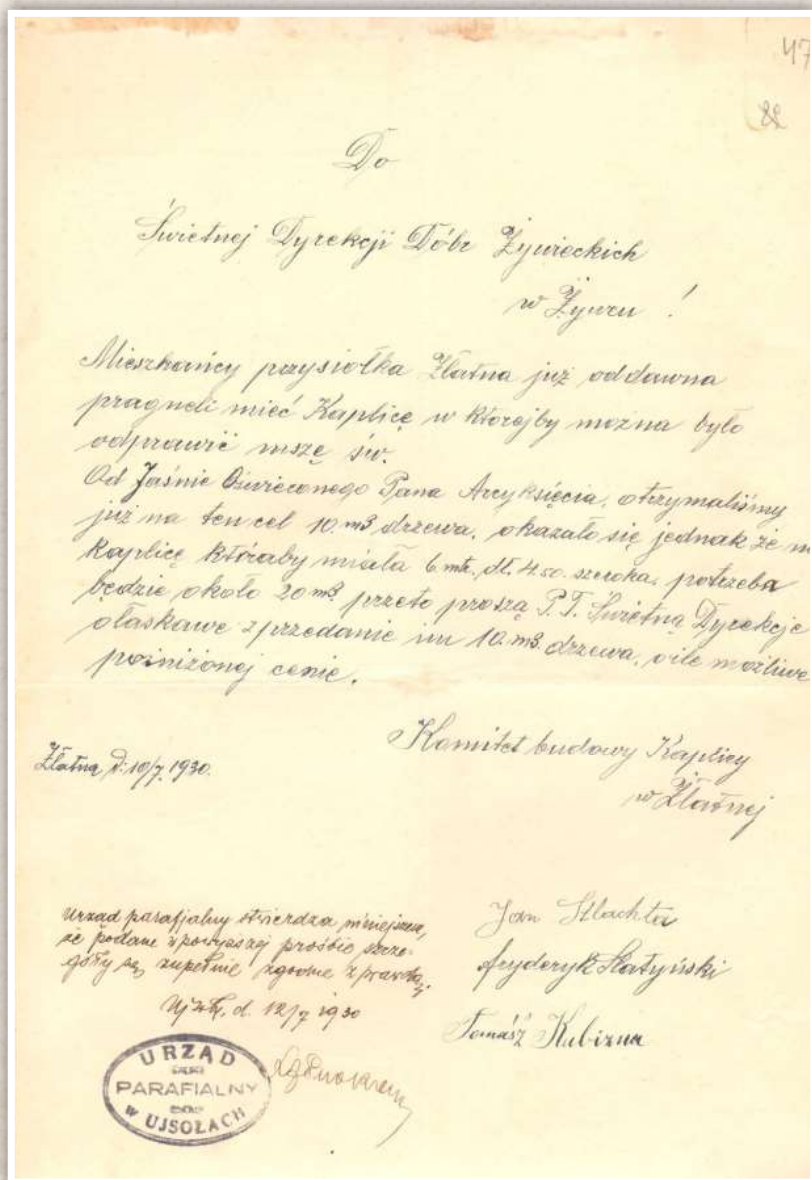 47
82
Do
Świetnej Dyrekcji Dóbr Żywieckich
w Żywcu !
Mieszkańcy przysiołka Złatna już oddawna
pragneli mieć Kaplicę w którejby można było
odprawić mszę św.
Od Jaśnie Oświeconego Pana Arcyksięcia, otrzymaliśmy
już na ten cel 10.m3 drzewa, okazało się jednak że
Kaplicę któraby miała 6 mtr. dł. 4.50. szeroka, potrzeba
będzie około 20 m3. przeto proszą P.T. Świetną Dyrekcje
ołaskawe zprzedanie im 10.m3. drzewa, oile możliwe
poźniżonej cenie.
Złatna, d. 10/7. 1930.
Komitet budowy Kaplicy
w Złatnej
Urząd parafjalny stwierdza niniejszem,
że podane w powyższej prośbie szcze-
góły są zupełnie zgodne z prawdą.
d. 12/7 1930
Jan Szlachta
Fryderyk Słatyński
Tomász Kubizna
URZĄD
PARAFIALNY
w UJSOŁACH